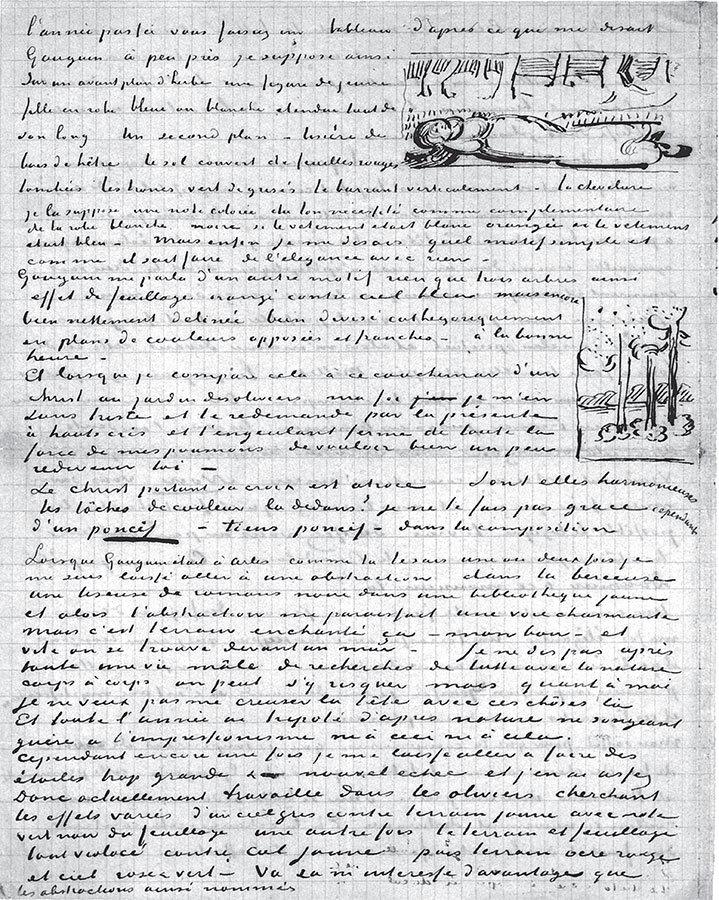 l'année passée vous faisiez un tableau d'après ce que me disait
Gauguin à peu près je suppose ainsi
Sur un avant plan d'herbe une figure de jeune
fille en robe bleue ou blanche etendue tout de
son long Un second plan – lisière de
bois de hêtre le sol couvert de feuilles rouges
tombées les troncs vert de grisés le barrant verticalement – la chevelure
je la suppose une note colorée du ton nécessité comme complementaire
de la robe blanche noire si le vetement etait blanc orangée si le vetement
etait bleu – Mais enfin je me disais quel motif simple et
comme il sait faire de l'elegance avec rien –
Gauguin me parla d'un autre motif rien que trois arbres ainsi
effet de feuillage orangé contre ciel bleu mais encore
bien nettement delinée bien divisé cathegoriquement
en plans de couleurs opposées et franches – à la bonne
heure –
Et lorsque je compare cela à ce cauchemar d'un
Christ au jardin des oliviers ma foi je m'en
sens triste et te redemande par la présente
à hauts cris et t'engeulant ferme de toute la
force de mes poumons de vouloir bien un peu
redevenir toi –
Le Christ portant sa croix est atroce Sont elles harmonieuses
les tâches de couleur la dedans? Je ne te fais pas grace cependant
d'un poncif – tiens poncif – dans la composition
Lorsque Gauguin était à Arles comme tu le sais une ou deux fois je
me suis laissé aller à une abstraction dans la berceuse
une liseuse de romans noire dans une bibliothèque jaune
et alors l'abstraction me paraissait une voie charmante
Mais c'est terrain enchanté ça – mon bon – et
vite on se trouve devant un mur – Je ne dis pas après
toute une vie mâle de recherches de lutte avec la nature
corps à corps on peut s'y risquer mais quant à moi
je ne veux pas me creuser la tête avec ces chôses là
Et toute l'année ai tripoté d'apres nature ne songeant
guère à l'impressionisme ni à ceci ni à cela.
Cependant encore une fois je me laisse aller à faire des
étoiles trop grande &c – nouvel echec et j'en ai assez
Donc actuellement travaille dans les oliviers cherchant
les effets variés d'un ciel gris contre terrain jaune avec note
vert noir du feuillage une autre fois le terrain et feuillage
tout violacé contre ciel jaune puis terrain ocre rouge
et ciel rose vert – Va ça m'interesse d'avantage que
les abstractions ainsi nommées